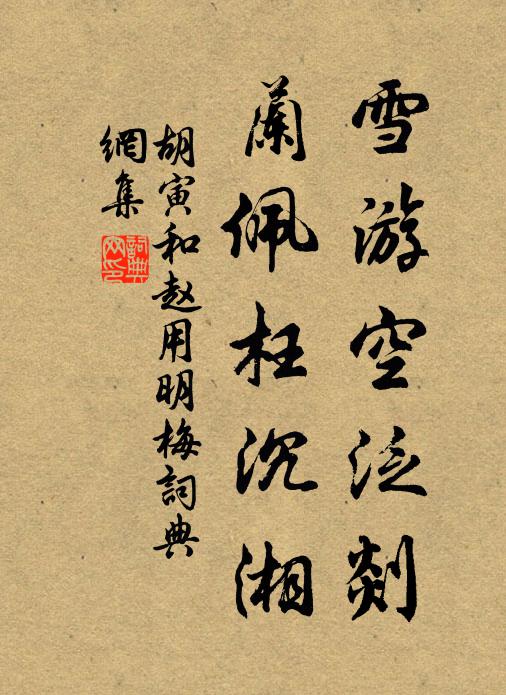 雪游空泛剡
蘭佩枉沉湘
胡寅和赵用明梅詞典
網集
詞典網印